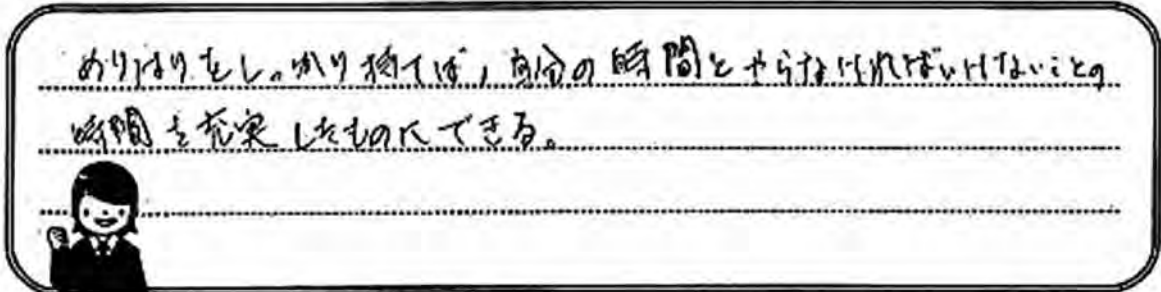 めりはりをしっかり持てば,自分の時間とやらなければいけないことの
時間を充実したものにできる。